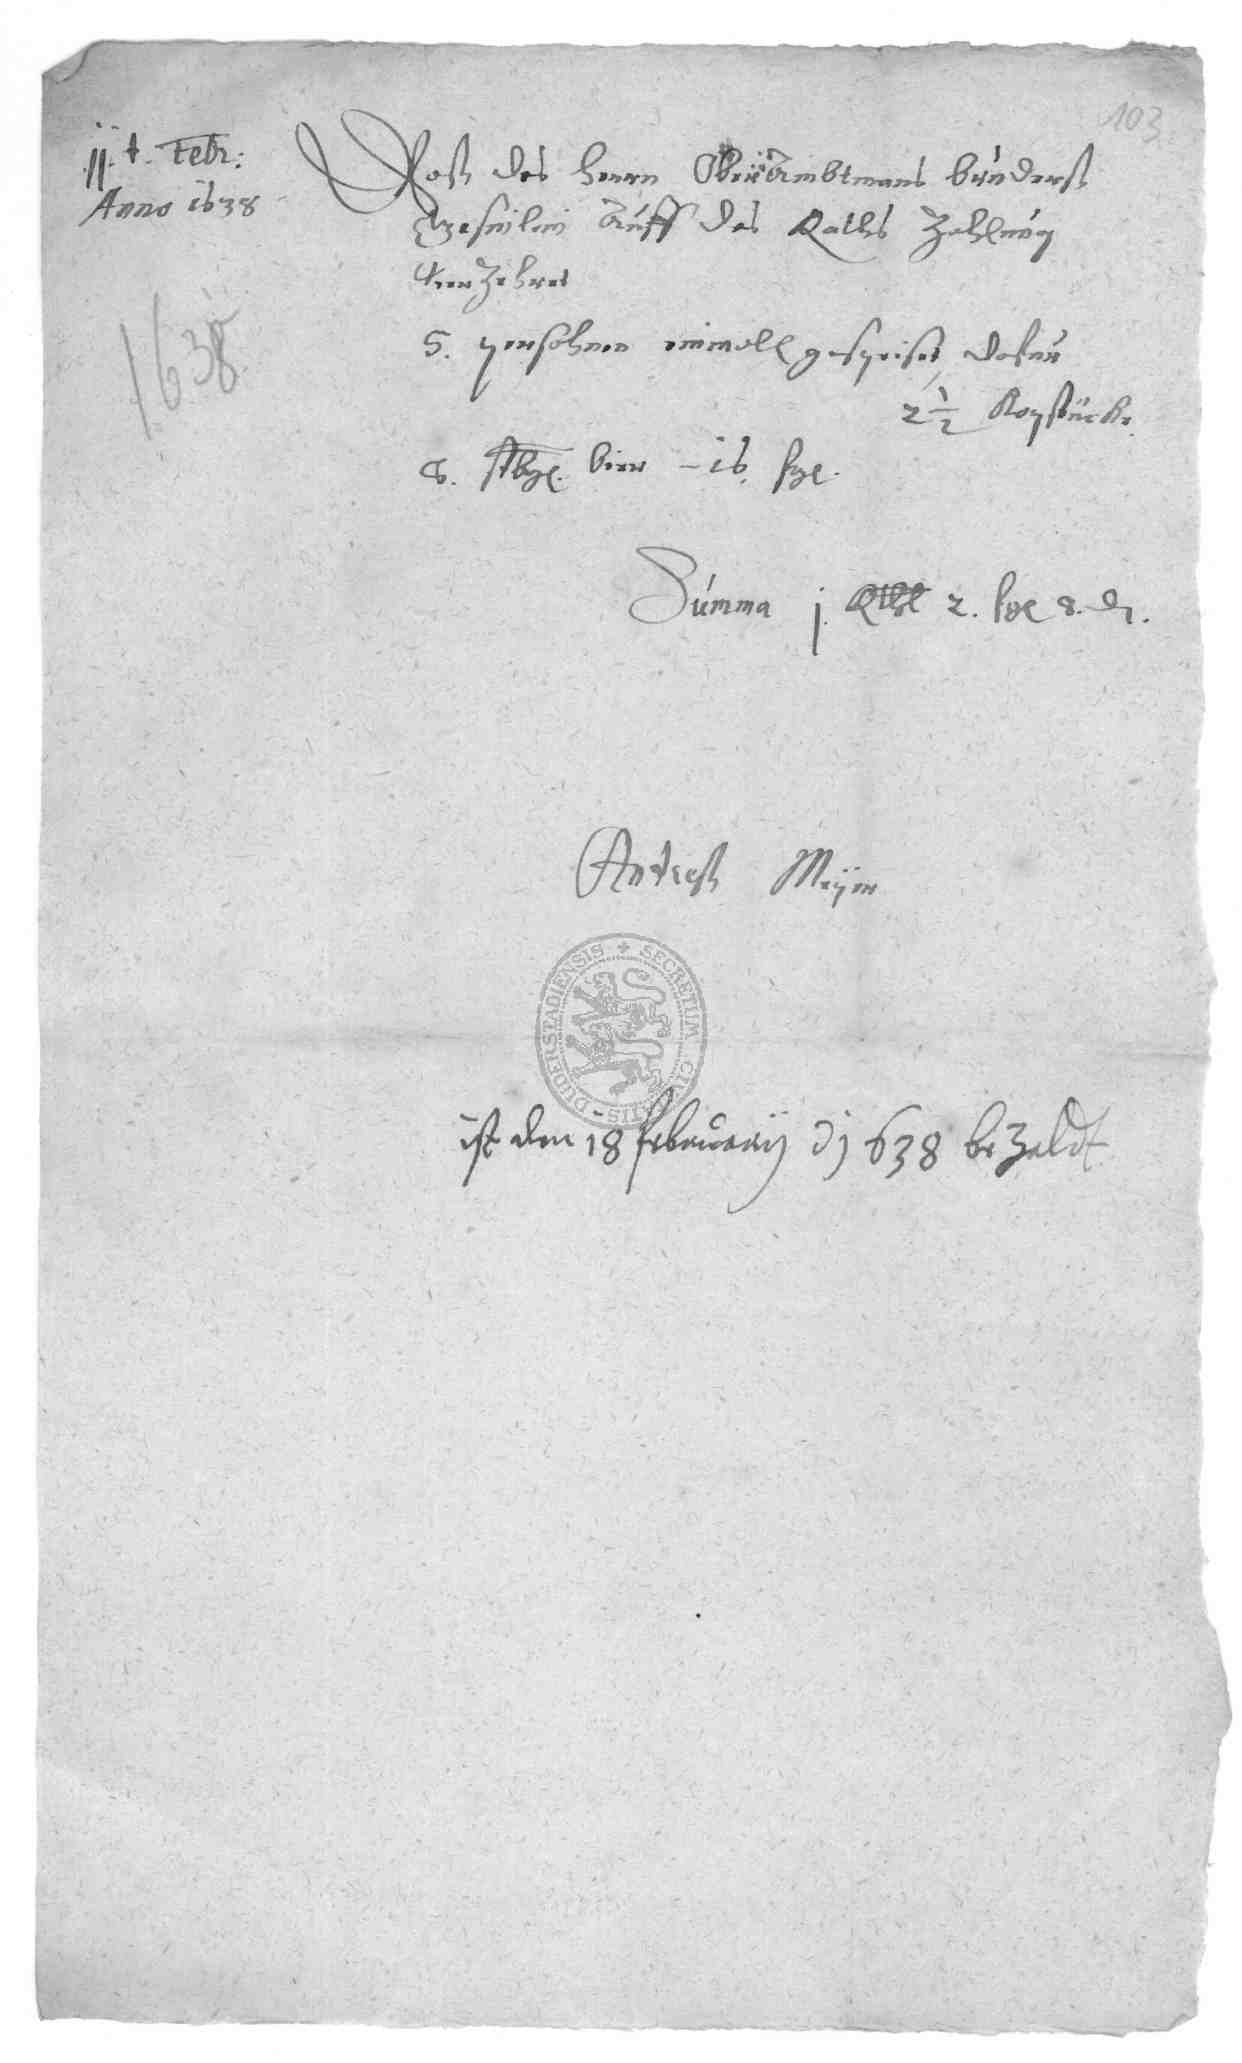 103
jj. t. Febr:
Anno i638
1638
Waß des herrn OberAmbtmans bruderß
Gesinlein Auff des Raths Zahlung
verZehret
5. personen einmall gespeiset dafur
2 1/2 Kopstücke
8. stbg. bier – i6. ßg.
Summa j. Rthl 2. ßg 8. d.
Andreß Meyer
SECRETUM CIVITATIS DUDERSTADIENSIS
ist den 18 february 1638 beZaldt